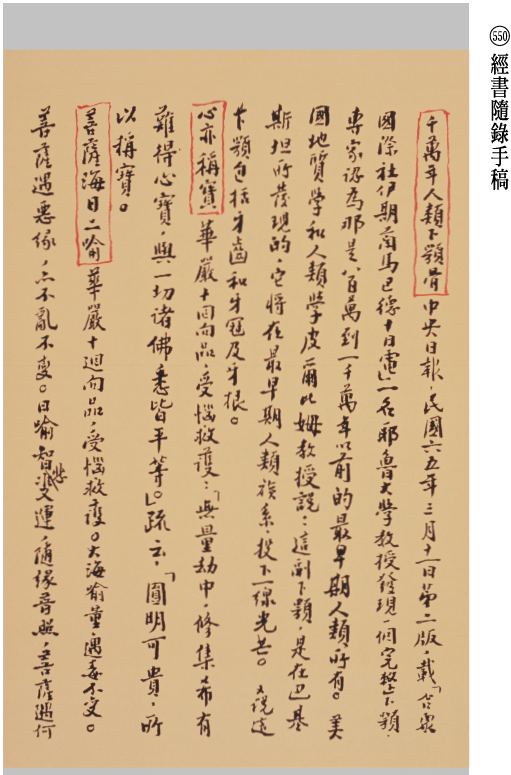 550 經書隨錄手稿
千萬年人類下顎骨 中央日報，民國六五年三月十一日第二版，載「合眾
國際社伊斯蘭馬巴德十日電」一名耶魯大學教授發現一個完整下顎，
專家認為那是八百萬到一千萬年以前的最早期人類所有。美
國地質學和人類學皮爾比姆教授說：這副下顎，是在巴基
斯坦所發現的，它將在最早期人類族系，投下一線光芒。又說這
下顎包括牙齒和牙冠及牙根。
心亦稱寶 華嚴十回向品，受惱救護：「無量劫中，修集希有
難得心寶，與一切諸佛悉皆平等」。疏云，「圓明可貴，所
以稱寶。
菩薩海日二喻 華嚴十迴向品，受惱救護。大海喻量，遇毒不變。
菩薩遇惡緣，亦不亂不變。日喻智悲雙運，隨緣普照，菩薩遇何